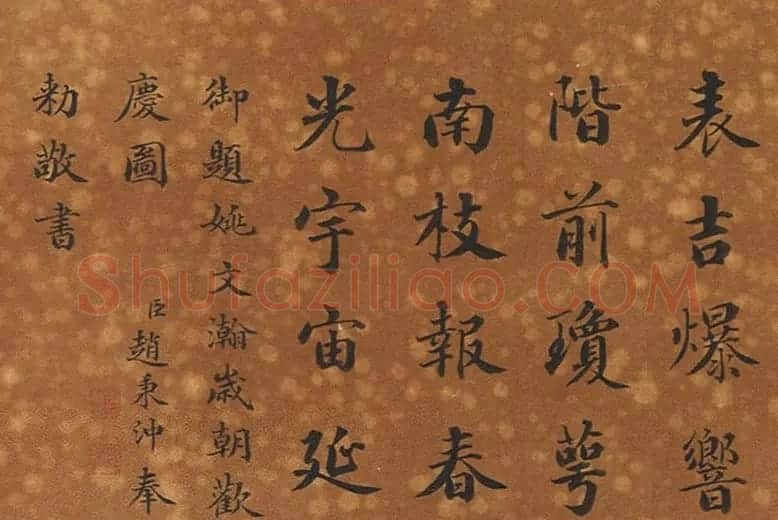 表吉爆響
階前瓊萼
南枝報春
光宇宙延
御題姚文瀚歲朝歡
慶圖
臣趙秉沖奉
勅敬書
Shufaziliao.COM